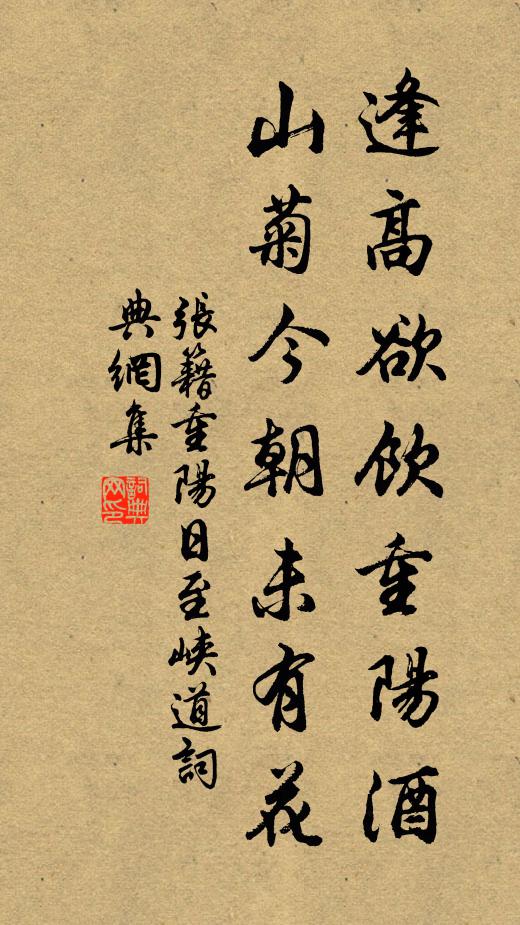 逢高欲飲重陽酒
山菊今朝未有花
張籍重陽日至峽道詞
典網集
詞典網印